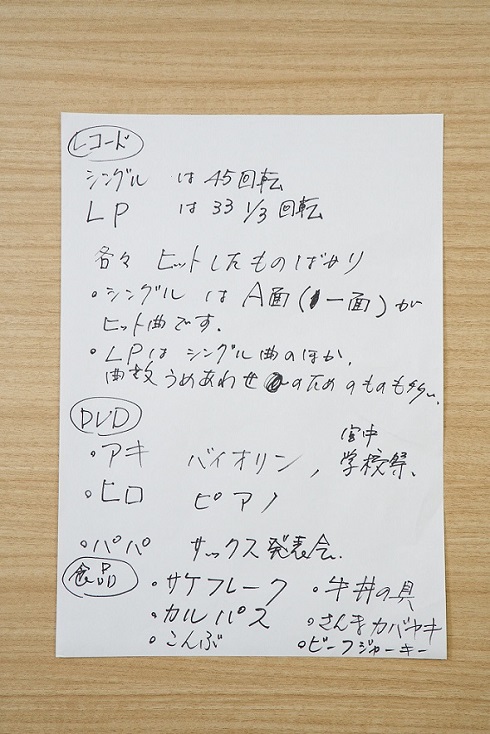 レコード
シングル は 45回転
LP は 33 1/3 回転
各々 ヒットしたものばかり
・シングル は A面(一面)が
ヒット曲です.
・LPは シングル曲のほか、
曲数うめあわせのためのものも多い、
DVD
・アキ バイオリン, 宮中
学校祭、
・ヒロ ピアノ
・パパ サックス発表会.
食品
・サケフレーク ・牛丼の具
・カルパス ・さんまカバヤキ
・こんぶ ・ビーフジャーキー